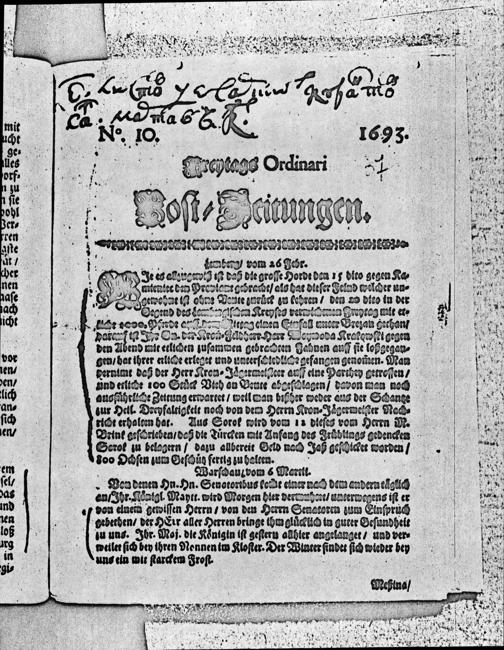 No. 10. 1693.
Freytags Ordinari
Post-Zeitungen.
Lemberg/ vom 26 Febr.
Je es allzugewiß ist daß die grosse Horde den 15 dito gegen Ka-
mieniec den Proviant gebracht/ als hat dieser Feind welcher un-
gewohnt ist ohne Beute zurück zu kehren/ den 20 dito in der
Gegend des Lembergischen Kreyses verwichenen Freytag mit et-
liche 1000. Pferde einen Einfall unter Brezan gethan/
darauf ist Ihr Gn. der Kron-Feldherr Herr Woywoda Krakowski gegen
den Abend mit etlichen zusammen gebrachten Fahnen auff sie loßgegan-
gen/ hat ihrer etliche erleget und unterschiedliche gefangen genomen. Man
vermint daß der Herr Kron-Jägermeister auff eine Parthey getroffen/
und etliche 100 Stück Vieh an Beute abgeschlagen/ davon man noch
ausführliche Zeitung erwartet/ weil man bißher weder aus der Schantze
zur Heil. Dreyfaltigkeit noch von dem Herrn Kron-Jägermeister Nach-
richt erhalten hat. Aus Sorok wird vom 12 dieses vom Herrn M.
Brink geschrieben/ daß die Türcken mit Anfang des Frühlings gedencken
Sorok zu belagern/ dazu allbereit Geld nach Jaß geschicket worden/
800 Ochsen zum Geschütz fertig zu halten.
Warschau/ vom 6 Martii.
Von denen Hn. Hn. Senatoribus kommt einer nach dem andern täglich
an/ Ihr. Königl. Mayt. wird Morgen hier vermuhtet/ unterwegens ist er
von einem gewissen Herrn/ von den Herrn Senatoren zum Einspruch
gebethen/ der HErr aller Herren bringe ihm glücklich in guter Gesundheit
zu uns. Ihr. Maj. die Königin ist gestern allhier angelanget/ und ver-
weilet sich bey ihren Nonnen im Kloster. Der Winter findet sich wieder bey
uns ein mit starckem Frost.
Meßina/